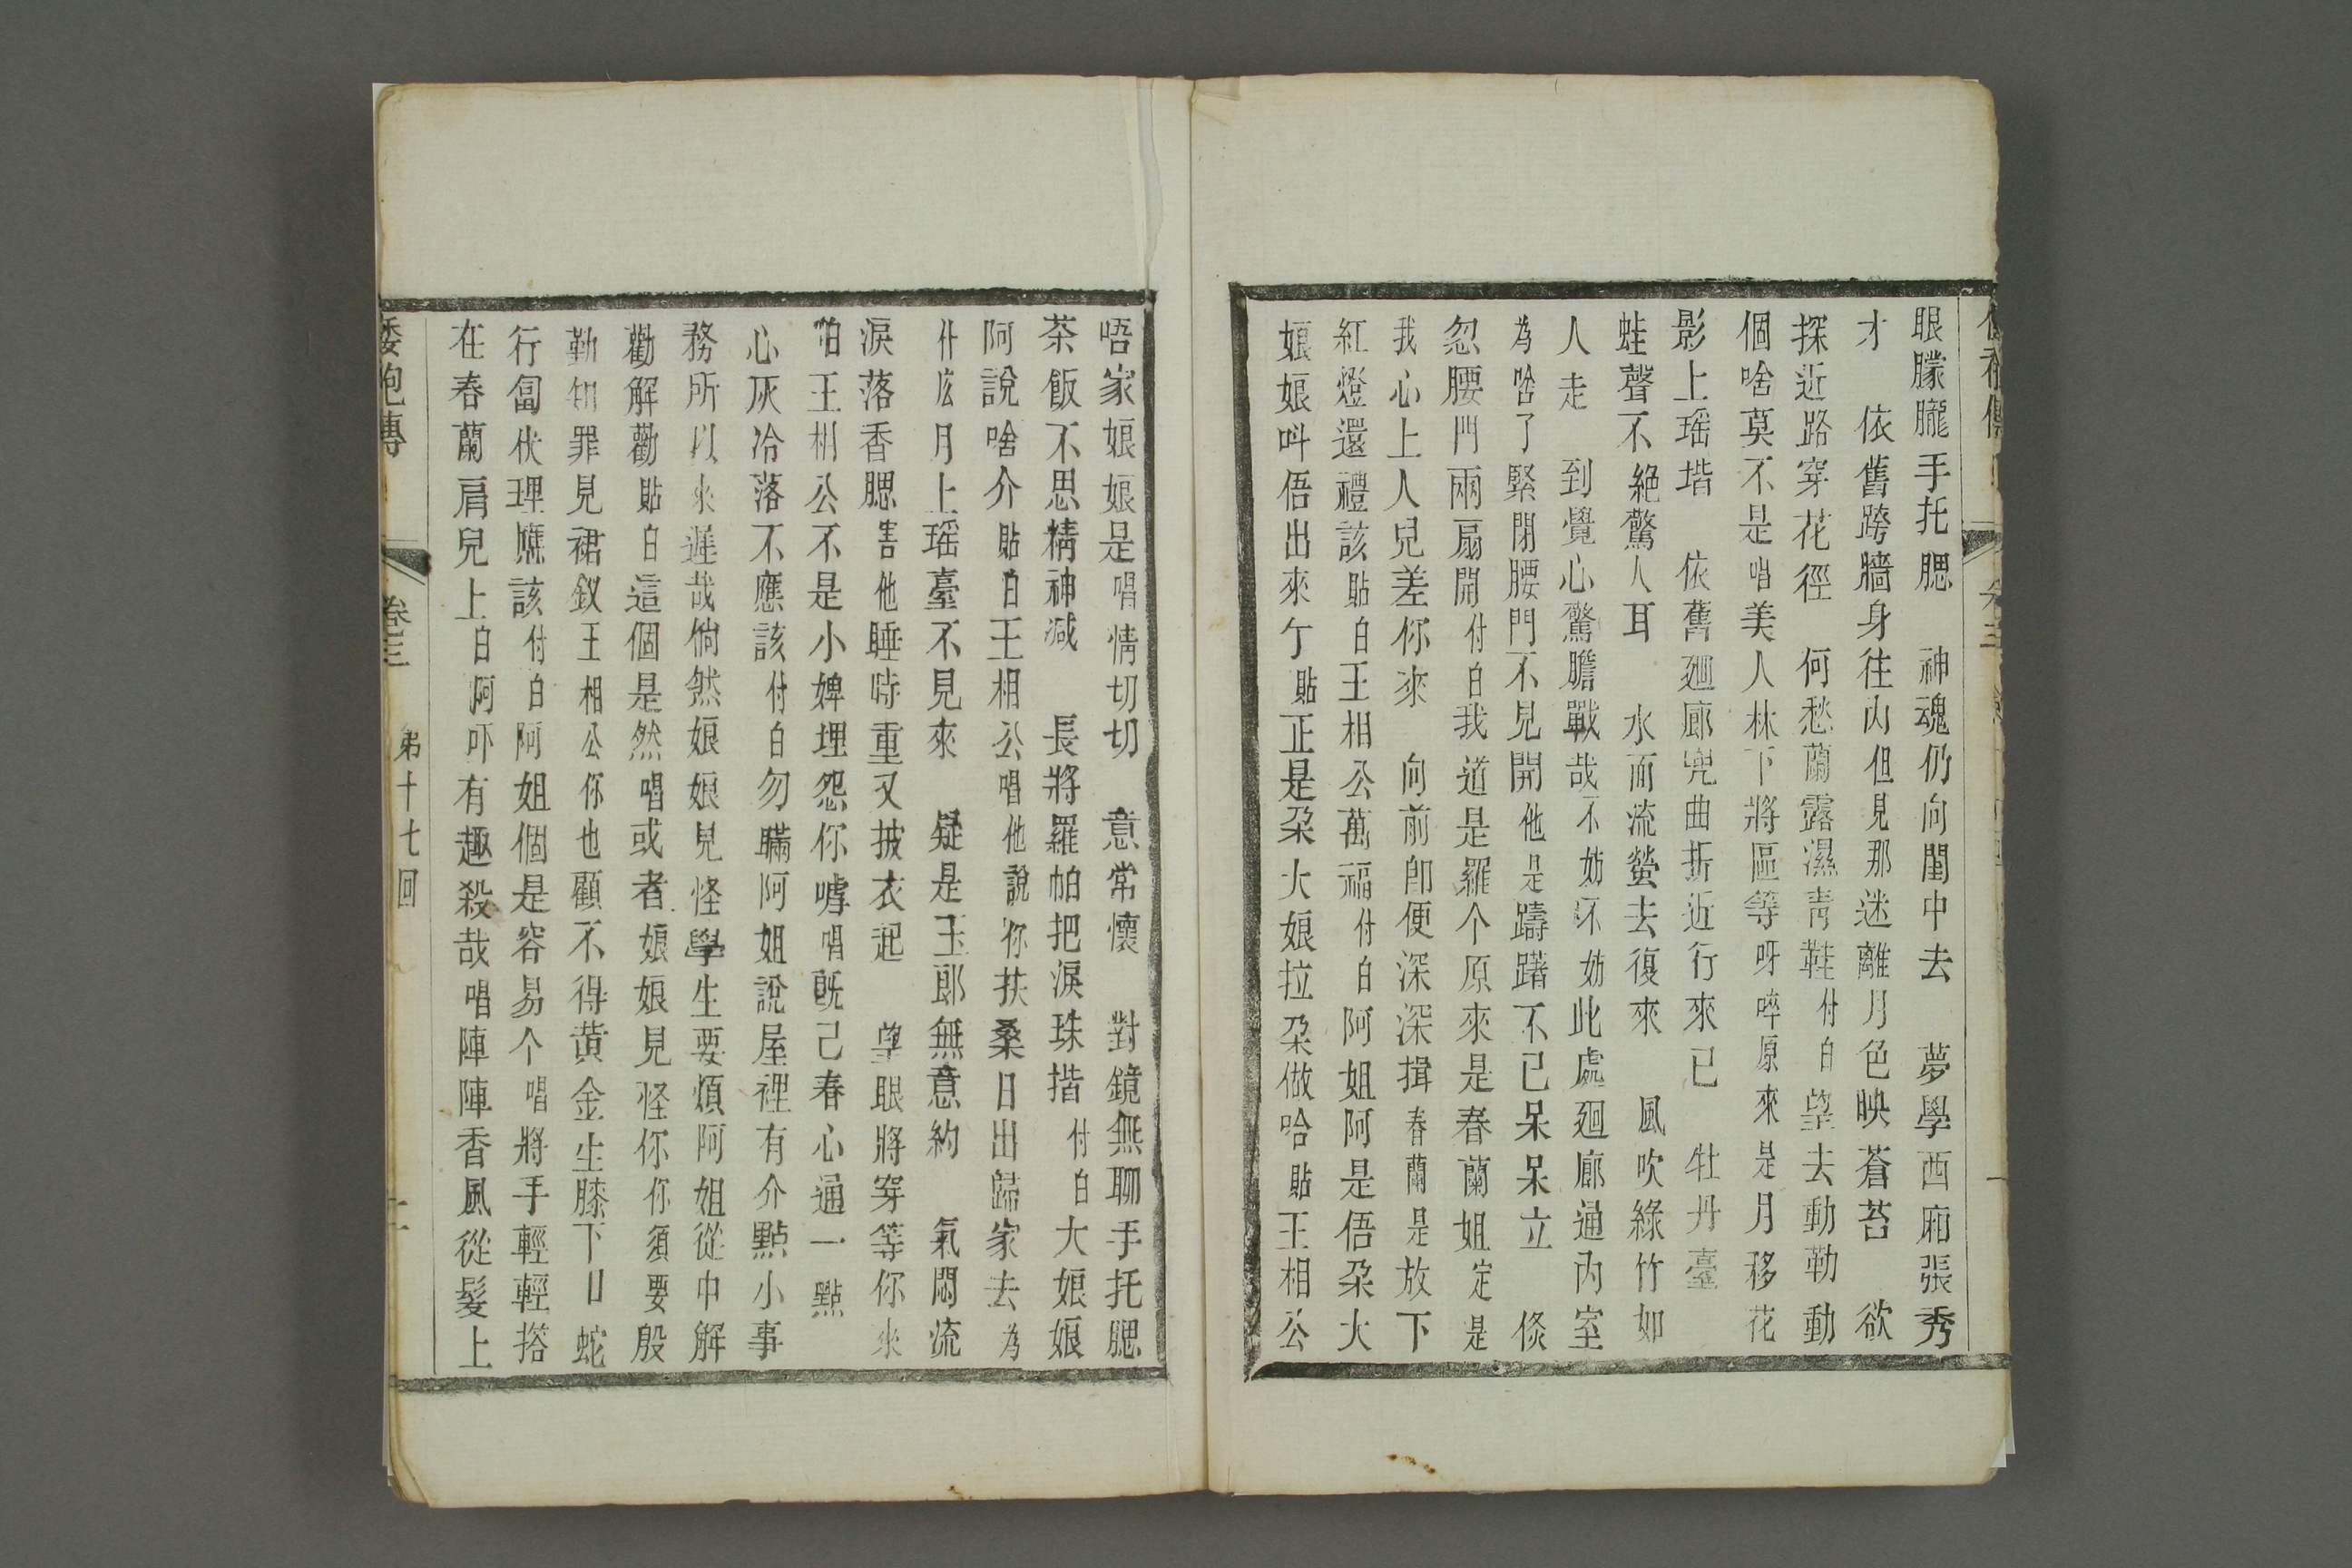 眼朦朧手托腮　神魂仍向閨中去　夢學西廂張秀
才　依舊跨牆身往內但見那迷離月色映蒼苔　欲
探近路穿花徑　何愁蘭露濕青鞋付白望去動勒動
個啥莫不是唱美人林下將區等呀啐原來是月移花
影上瑶堦　依舊廻廊兜曲折近行來已　牡丹臺
蛙聲不絶驚人耳　水面流螢去復來　風吹綠竹如
人走　到覺心驚膽戰哉不妨不妨此處廻廊通內室
為啥了緊閉腰門不見開他是躊躇不已呆呆立　倐
忽腰門兩扇開付白我道是羅个原來是春蘭姐定是
我心上人兒差你來　向前即便深深揖春蘭是放下
紅燈還禮該貼白王相公萬福付白阿姐阿是俉朶大
娘娘呌俉出來亍貼正是朶大娘拉朶做哈貼王相公
唔家娘娘是唱情切切　意常懷　對鏡無聊手托腮
茶飯不思精神減　長將羅帕把淚珠揩付白大娘娘
阿說啥介貼白王相公唱他說你扶桑日出歸家去為
什庅月上瑶臺不見來　疑是玉郎無意約　氣悶流
淚落香腮害他睡時重又披衣起　望眼將穿等你來
怕王相公不是小婢埋怨你嘑唱旣己春心通一點
心灰冷落不應該付白勿瞞阿姐說屋裡有介點小事
務所以來遲哉倘然娘娘見怪學生要煩阿姐從中解
勸解勸貼白這個是然唱或者娘娘見怪你你須要殷
勤知罪見裙釵王相公你也顧不得黃金生膝下日蛇
行匐伏理應該付白阿姐個是容易个唱將手輕輕搭
在春蘭肩兒上白阿吓有趣殺哉唱陣陣香風從髮上
倭袍傳　卷三　第十七回　二